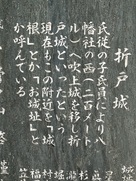 折戸城
氏従の子氏員により八
幡社の西（二百メート
ル）吹上城を移し折
戸城といったという
現在もこの附近を「城
根」とか「お城址」と
か呼んでいる